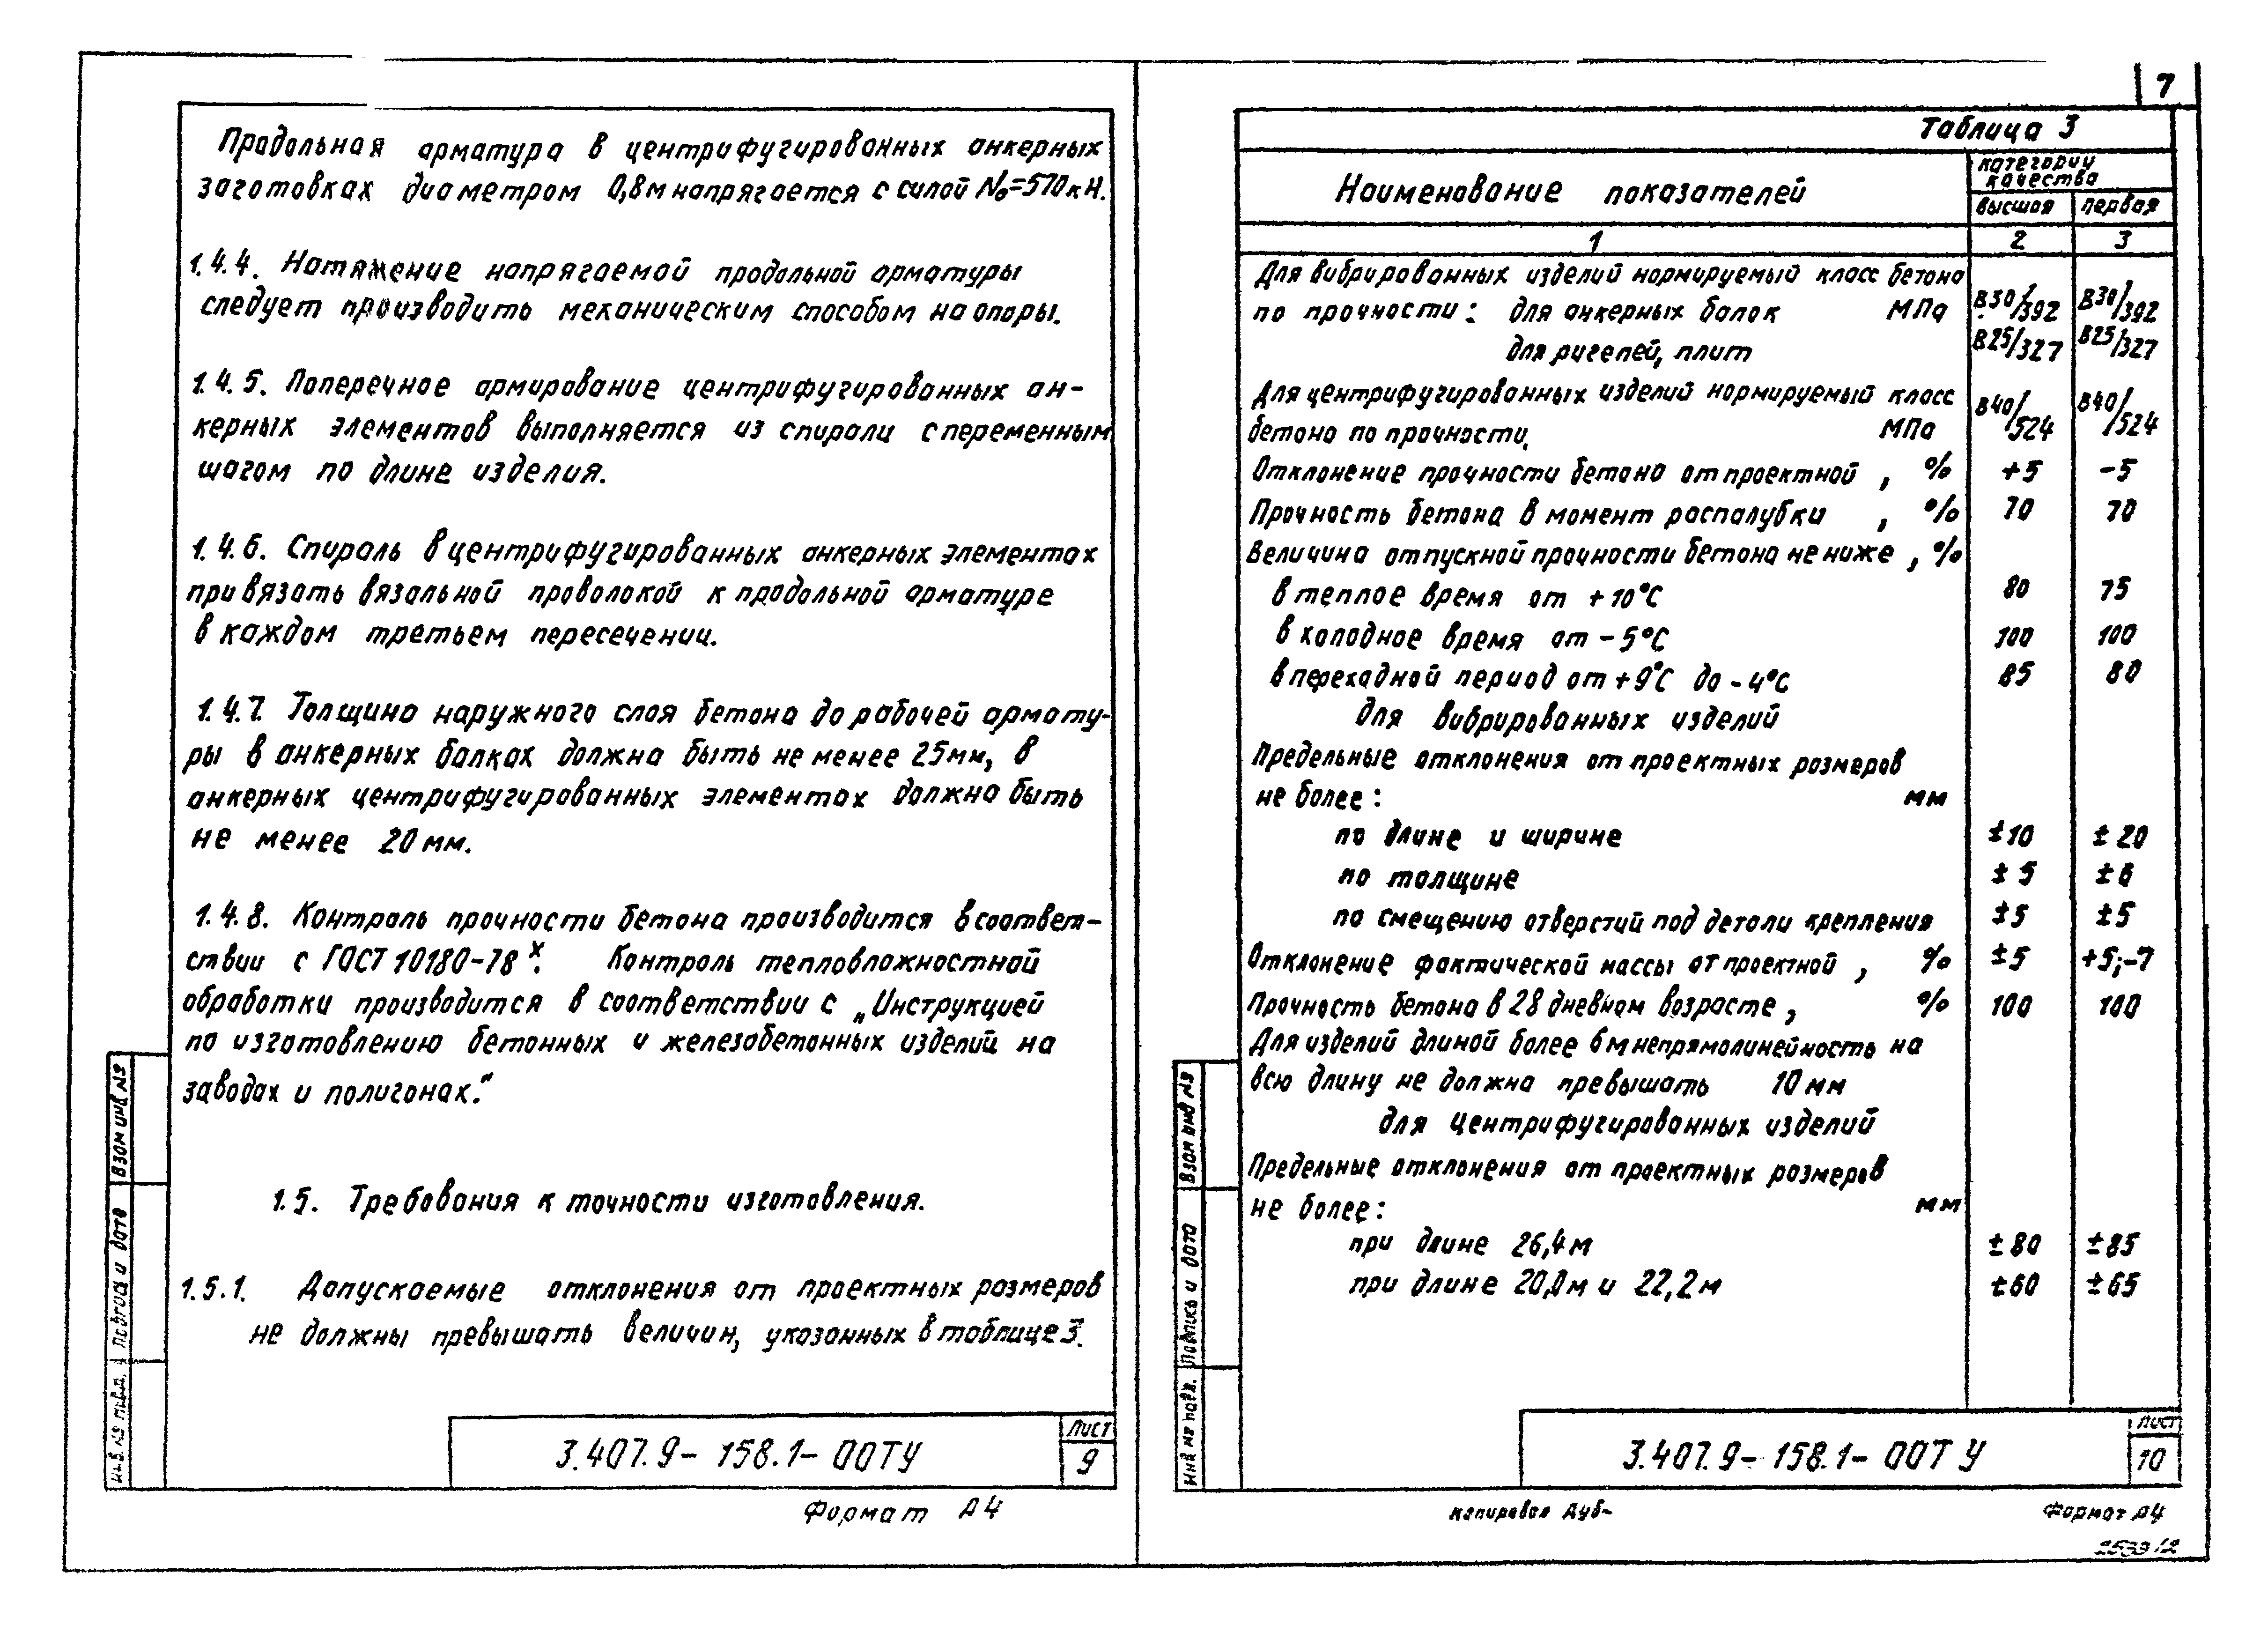 7
Продольная арматура в центрифугированных анкерных
заготовках диаметром 0,8м напрягается с силой N₀=570кН.
1.4.4. Натяжение напрягаемой продольной арматуры
следует производить механическим способом на опоры.
1.4.5. Поперечное армирование центрифугированных ан-
керных элементов выполняется из спирали с переменным
шагом по длине изделия.
1.4.6. Спираль в центрифугированных анкерных элементах
привязать вязальной проволокой к продольной арматуре
в каждом третьем пересечении.
1.4.7. Толщина наружного слоя бетона до рабочей армату-
ры в анкерных балках должна быть не менее 25мм, в
анкерных центрифугированных элементах должна быть
не менее 20мм.
1.4.8. Контроль прочности бетона производится в соответ-
ствии с ГОСТ 10180-78ˣ. Контроль тепловлажностной
обработки производится в соответствии с „Инструкцией
по изготовлению бетонных и железобетонных изделий на
заводах и полигонах."
1.5. Требования к точности изготовления.
1.5.1. Допускаемые отклонения от проектных размеров
не должны превышать величин, указанных в таблице 3.
Взам инв №
Подпись и дата
Инв. № подл.
3.407.9-158.1-00ТУ
Лист
9
Формат А4
Таблица 3
Наименование показателей
категории
качества
высшая первая
1 2 3
Для вибрированных изделий нормируемый класс бетона
по прочности: для анкерных балок МПа В30/392 В30/392
для ригелей, плит В25/327 В25/327
Для центрифугированных изделий нормируемый класс
бетона по прочности, МПа В40/524 В40/524
Отклонение прочности бетона от проектной , % +5 -5
Прочность бетона в момент распалубки , % 70 70
Величина отпускной прочности бетона не ниже , %
в теплое время от +10°С 80 75
в холодное время от -5°С 100 100
в переходной период от +9°С до -4°С 85 80
для вибрированных изделий
Предельные отклонения от проектных размеров
не более: мм
по длине и ширине ±10 ±20
по толщине ±5 ±6
по смещению отверстий под детали крепления ±5 ±5
Отклонение фактической массы от проектной , % ±5 +5;-7
Прочность бетона в 28 дневном возрасте , % 100 100
Для изделий длиной более 6м непрямолинейность на
всю длину не должна превышать 10мм
для центрифугированных изделий
Предельные отклонения от проектных размеров
не более: мм
при длине 26,4м ±80 ±85
при длине 20,0м и 22,2м ±60 ±65
Взам инв №
Подпись и дата
Инв № подл.
3.407.9-158.1-00ТУ
Лист
10
Копировал Дуб-
Формат А4